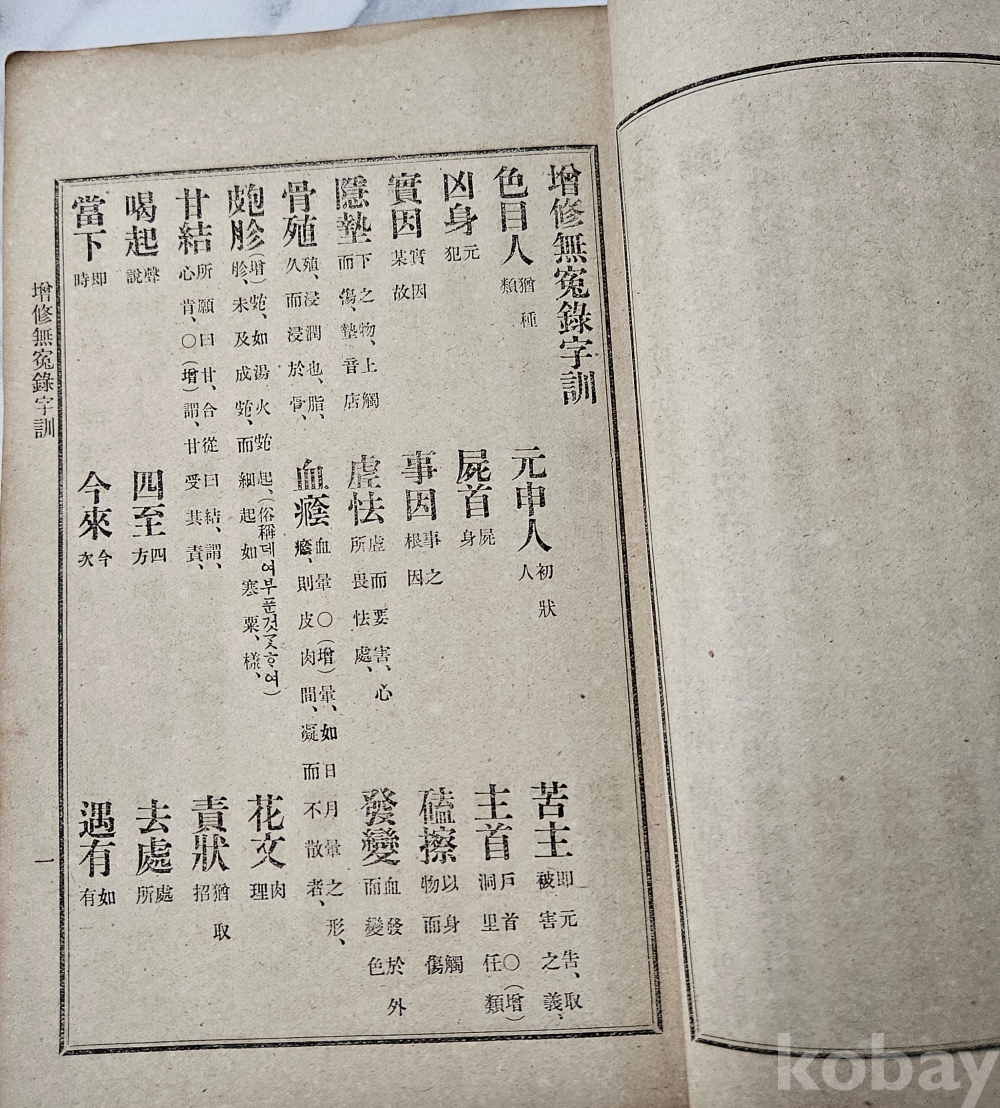 增修無冤錄字訓
色目人 猶種類 元申人 初狀人 苦主 即元告、取被害之義、
凶身 元犯 屍首 屍身 主首 戶首○(增)洞里任類
實因 實因某故 事因 事之根因 磕擦 以身觸物而傷
隱墊 下之物、上觸而傷、墊音店 虛怯 虛而要害、心所畏怯處、 發變 血發於外而變色
骨殖 殖、浸潤也、脂、久而浸於骨、 血癊 血暈○(增)暈、如日月暈之形、癊、則皮肉間、凝而不散者、
皰胗 (增)皰、如湯火皰起、(俗稱데여부푼것 호여)胗、未及成皰、而細起如寒粟、樣、 花文 肉理
甘結 所願曰甘、合從曰結、謂、心肯、○(增)謂、甘受其責、 責狀 猶取招
喝起 聲說 四至 四方 去處 處所
當下 即時 今來 今次 遇有 如有
增修無冤錄字訓
一
kobay